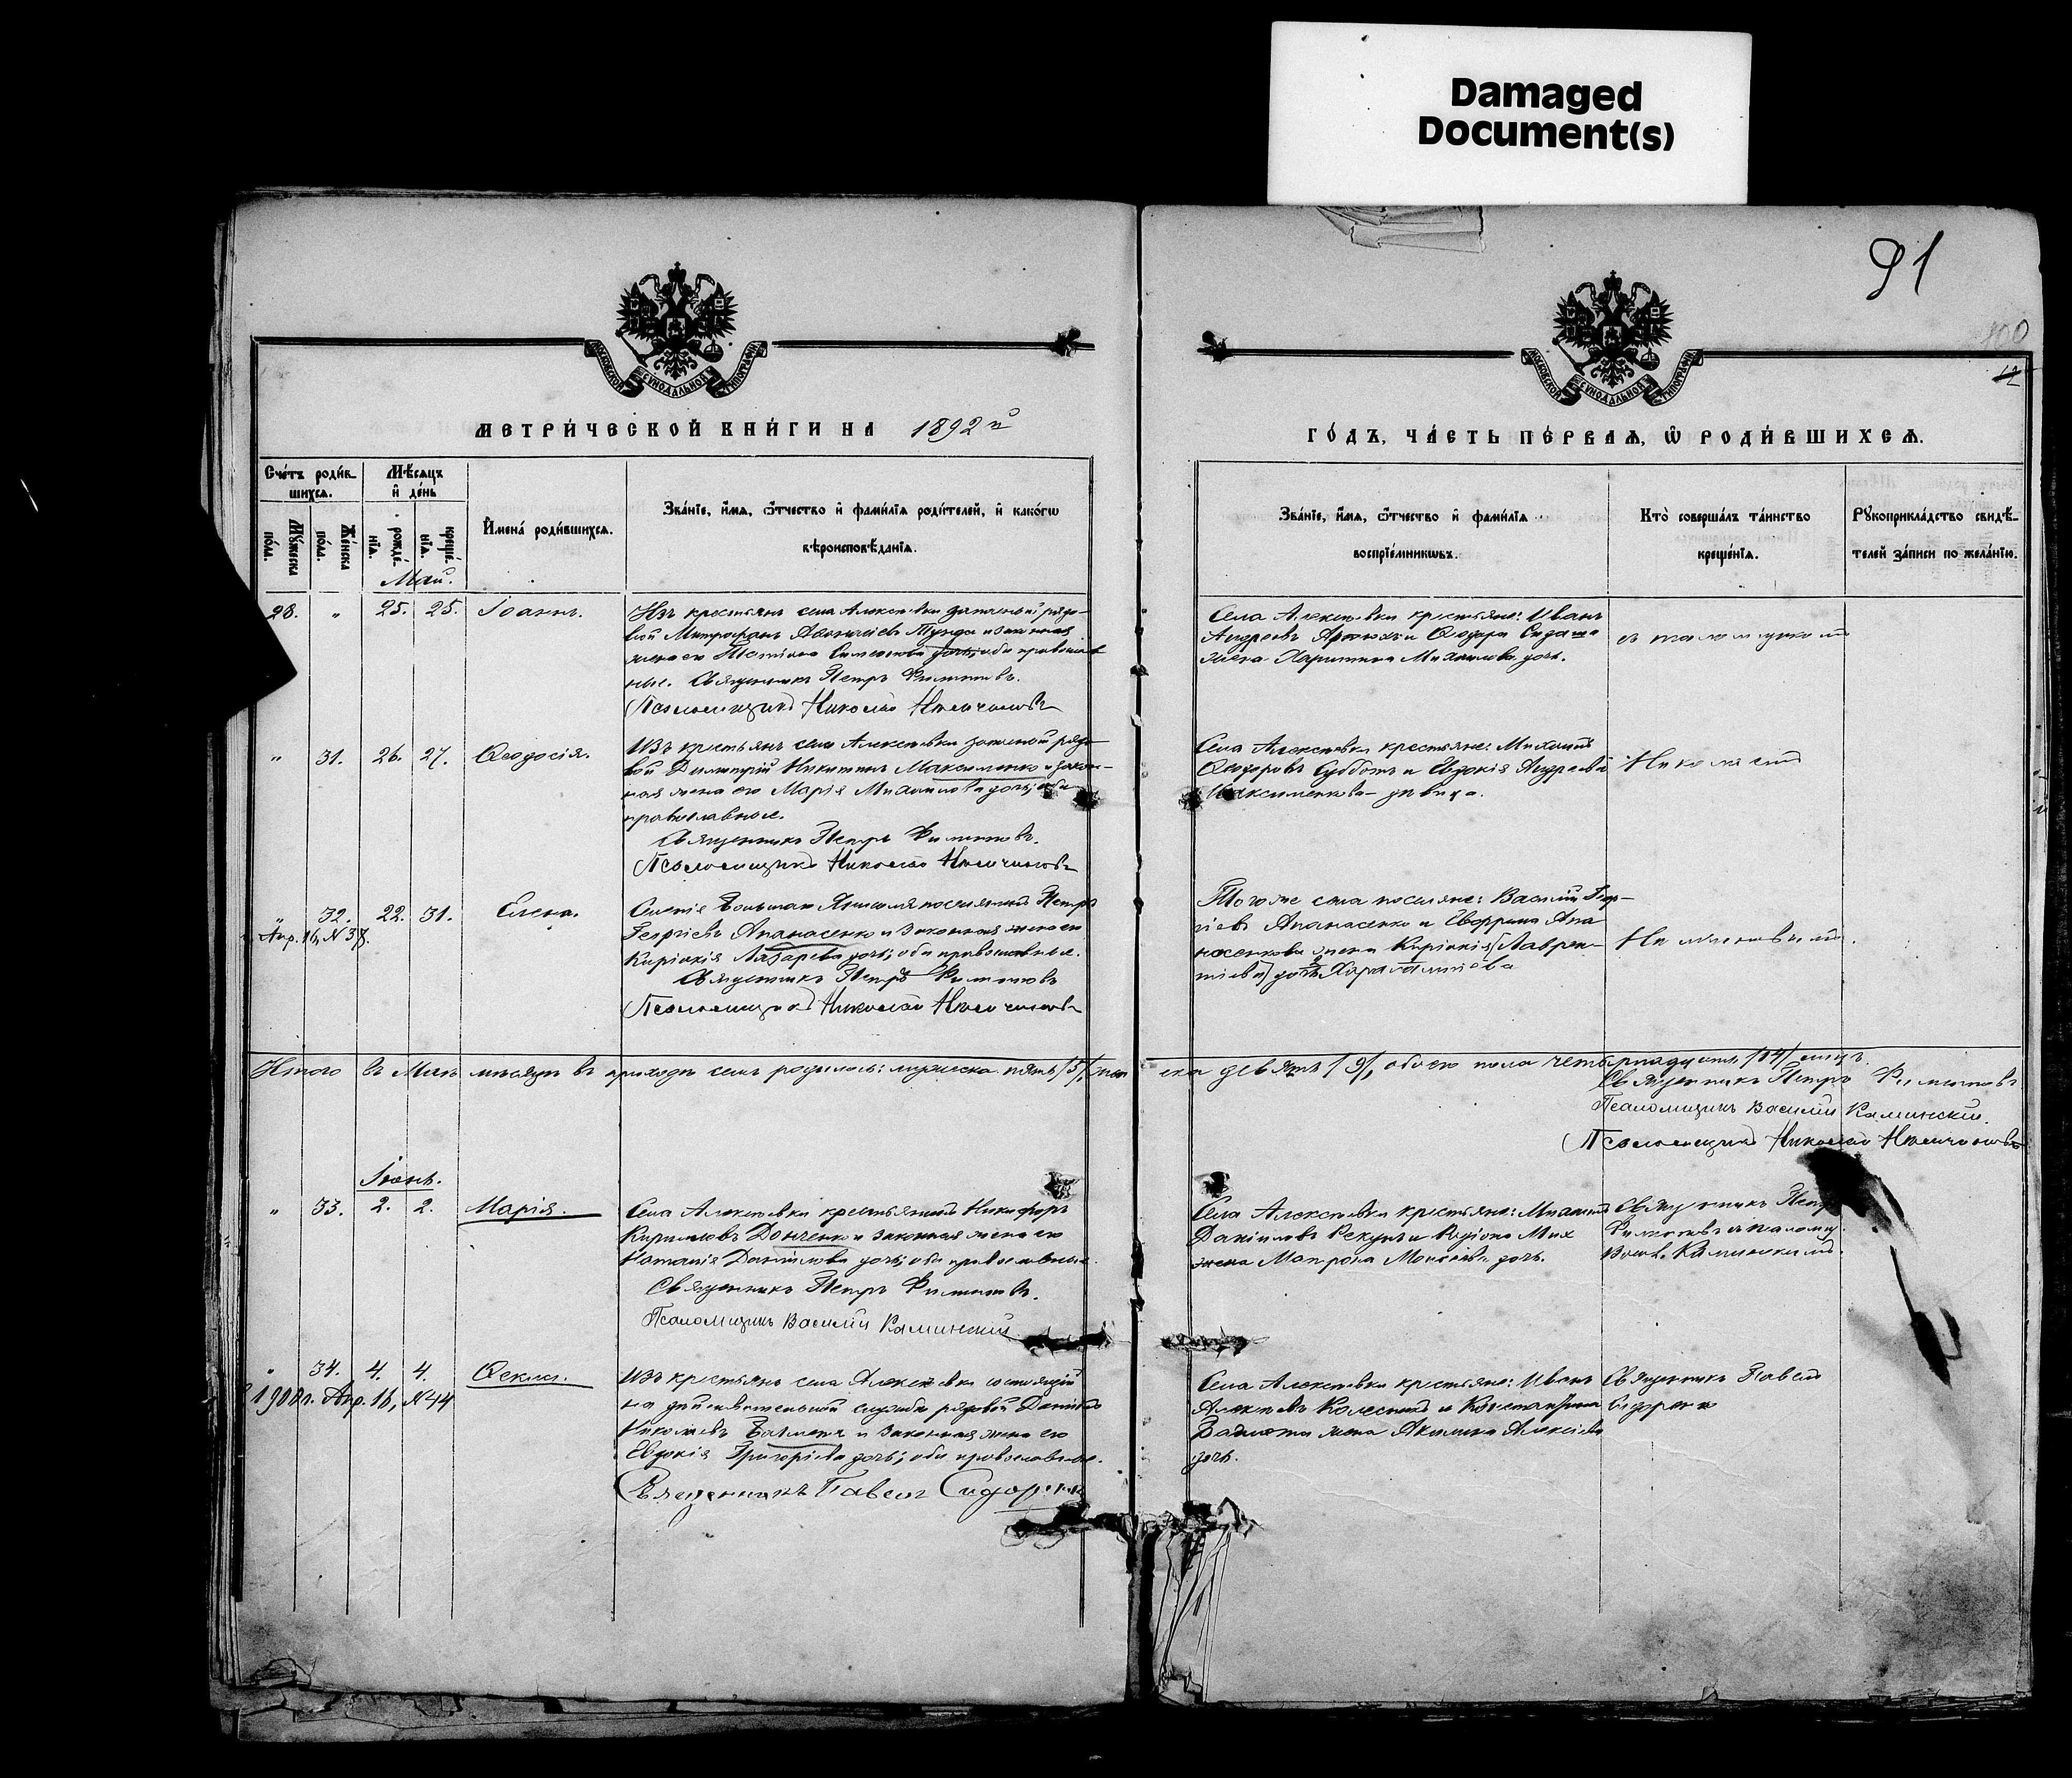 Damaged
Document(s)
91
100
12
МОСКОВСКОЙ СѴНОДАЛЬНОЙ ТИПОГРАФІИ
МОСКОВСКОЙ СѴНОДАЛЬНОЙ ТИПОГРАФІИ
МЕТРИ́ЧЕСКОЙ КНИ́ГИ НА 1892 й
ГО́ДЪ, ЧА́СТЬ ПЕ́РВАѦ, Ѿ РОДИ́ВШИХСѦ.
Сче́тъ роди́в-
шихсѧ.
Мꙋ́жеска по́ла.
Же́нска по́ла.
Мѣ́сѧцъ
и҆ де́нь
рожде́-
нїѧ.
креще́-
нїѧ.
И҆мена̀ роди́вшихсѧ.
Зва́нїе, и҆́мѧ, ѻ҆́тчество и҆ фами́лїѧ роди́телей, и҆ како́гѡ
вѣроисповѣ́данїѧ.
Зва́нїе, и҆́мѧ, ѻ҆́тчество и҆ фами́лїѧ
воспрїе́мникѡвъ.
Кто̀ соверша́лъ та́инство
креще́нїѧ.
Рꙋкоприкла́дство свидѣ́-
телей за́писи по жела́нїю.
Май.
28. " 25. 25. Іоаннъ.
Изъ крестьянъ села Алексѣевки запасный рядо-
вой Митрофанъ и законная
жена его Симеонова дочь; оба православ
ные. Священникъ Петръ Филиповъ.
Псаломщикъ Николай
Села Алексѣевки крестьяне: Иванъ
Андреевъ и Ѳедора
жена Харитина Михаилова дочь.
" 31. 26. 27. Ѳеодосія.
Изъ крестьянъ села Алексѣевки запасной рядо-
вой Димитрій Никитинъ Максименко и закон-
ная жена его Марія Михаилова дочь; оба
православные.
Священникъ Петръ Филиповъ.
Псаломщикъ Николай
Села Алексѣевки крестьяне: Михаилъ
Ѳеодоровъ Субботъ и Евдокія Андреева
Максименкова - дѣвица.
" 32. 22. 31. Елена.
Апр. 16, N 37.
Селенія Большой Янисоля поселянинъ Петръ
Георгіевъ Апанасенко и законная жена его
Киріакія Лазарева дочь; оба православные.
Священникъ Петръ Филиповъ
Псаломщикъ Николай
Того же села поселяне: Василій Геор-
гіевъ Апанасенко и Апа
насенкова жена Киріакія (Лаврен-
тіева) дочь
Итого въ Маѣ мѣсяцѣ въ приходѣ семъ родилось: мужеска пять /5/, жен
ска девять /9/, обоего пола четырнадцать /14/ лицъ.
Священникъ Петръ Филиповъ
Псаломщикъ Василій Каминскій.
Псаломщикъ Николай
Іюнь.
" 33. 2. 2. Марія.
Села Алексѣевки крестьянинъ Никифоръ
Кирилловъ Донченко и законная жена его
Наталія Даніилова дочь; оба православные.
Священникъ Петръ Филиповъ.
Псаломщикъ Василій Каминскій
Села Алексѣевки крестьяне: Михаилъ
Даніиловъ и Родіона
жена Матрона Моисеева дочь.
Священникъ Петръ
Филиповъ съ псаломщ.
Васил. Каминскимъ.
" 34. 4. 4. Ѳекла.
1908г. Апр. 16, N 44
Изъ крестьянъ села Алексѣевки состоящій
на дѣйствительной службѣ рядовой Даніилъ
Николаевъ и законная жена его
Евдокія Григоріева дочь; оба православные.
Священникъ Павелъ Сидоренко
Села Алексѣевки крестьяне: Иванъ
Алексѣевъ Колесникъ и Константина
жена Акилина Алексіева
дочь.
Священникъ Павелъ
Сидоренко